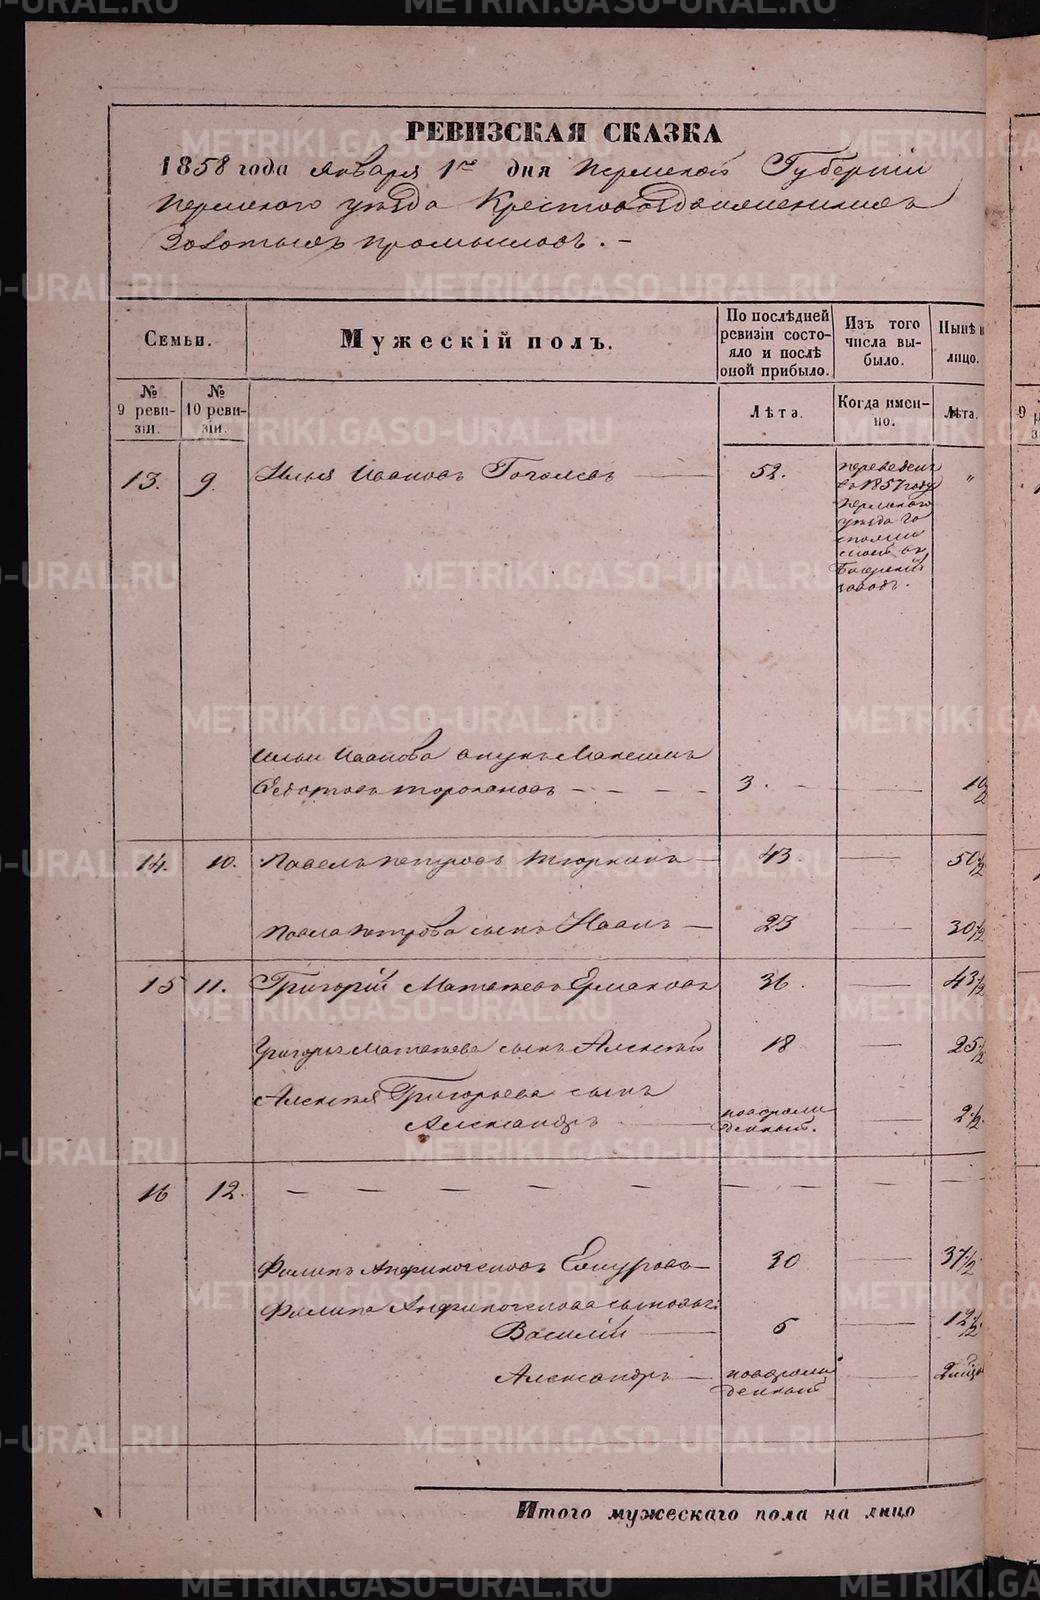 РЕВИЗСКАЯ СКАЗКА
1858 года Января 1го дня Пермской Губернiи
Пермского уезда Крестовоздвиженскихъ
Золотыхъ промыслахъ. –
Семьи.
Мужескiй полъ.
По последней ревизiи состояло и после оной прибыло.
Изъ того числа выбыло.
Ныне н лицо.
№ 9 ревизiи.
№ 10 ревизiи.
Лѣта.
Когда именно.
Лѣта.
13. 9. Илья Ивановъ 52. "
переведенъ
въ 1857 году
Пермского
уезда
заводъ.
Ильи Иванова внукъ Максимъ
Федотовъ Тороповъ 3. 10/2
14. 10. Павелъ Петровъ 43. 50 1/2
Павла Петрова сынъ Иванъ 23 30 1/2
15 11. Григорiй Матвеевъ Ермаковъ 36. 43 1/2
Григорья Матвеева сынъ Алексей 18 25 1/2
Алексея Григорьева сынъ
Александръ новорожденный. 2 1/2.
16 12. – – – – – – – – –
Филипъ Анфиногеновъ 30 37 1/2
Филипа Анфиногенова сыновья:
Василiй 5 12 1/2
Александръ новорожденный
Итого мужескаго пола на лицо
METRIKI.GASO-URAL.RU